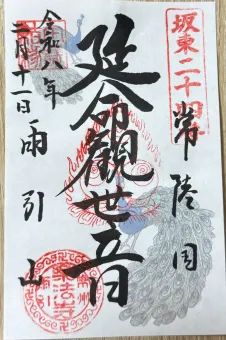 坂東二十四番
常陸国
延命観世音
雨引山
令和八年
二月十一日
楽法寺